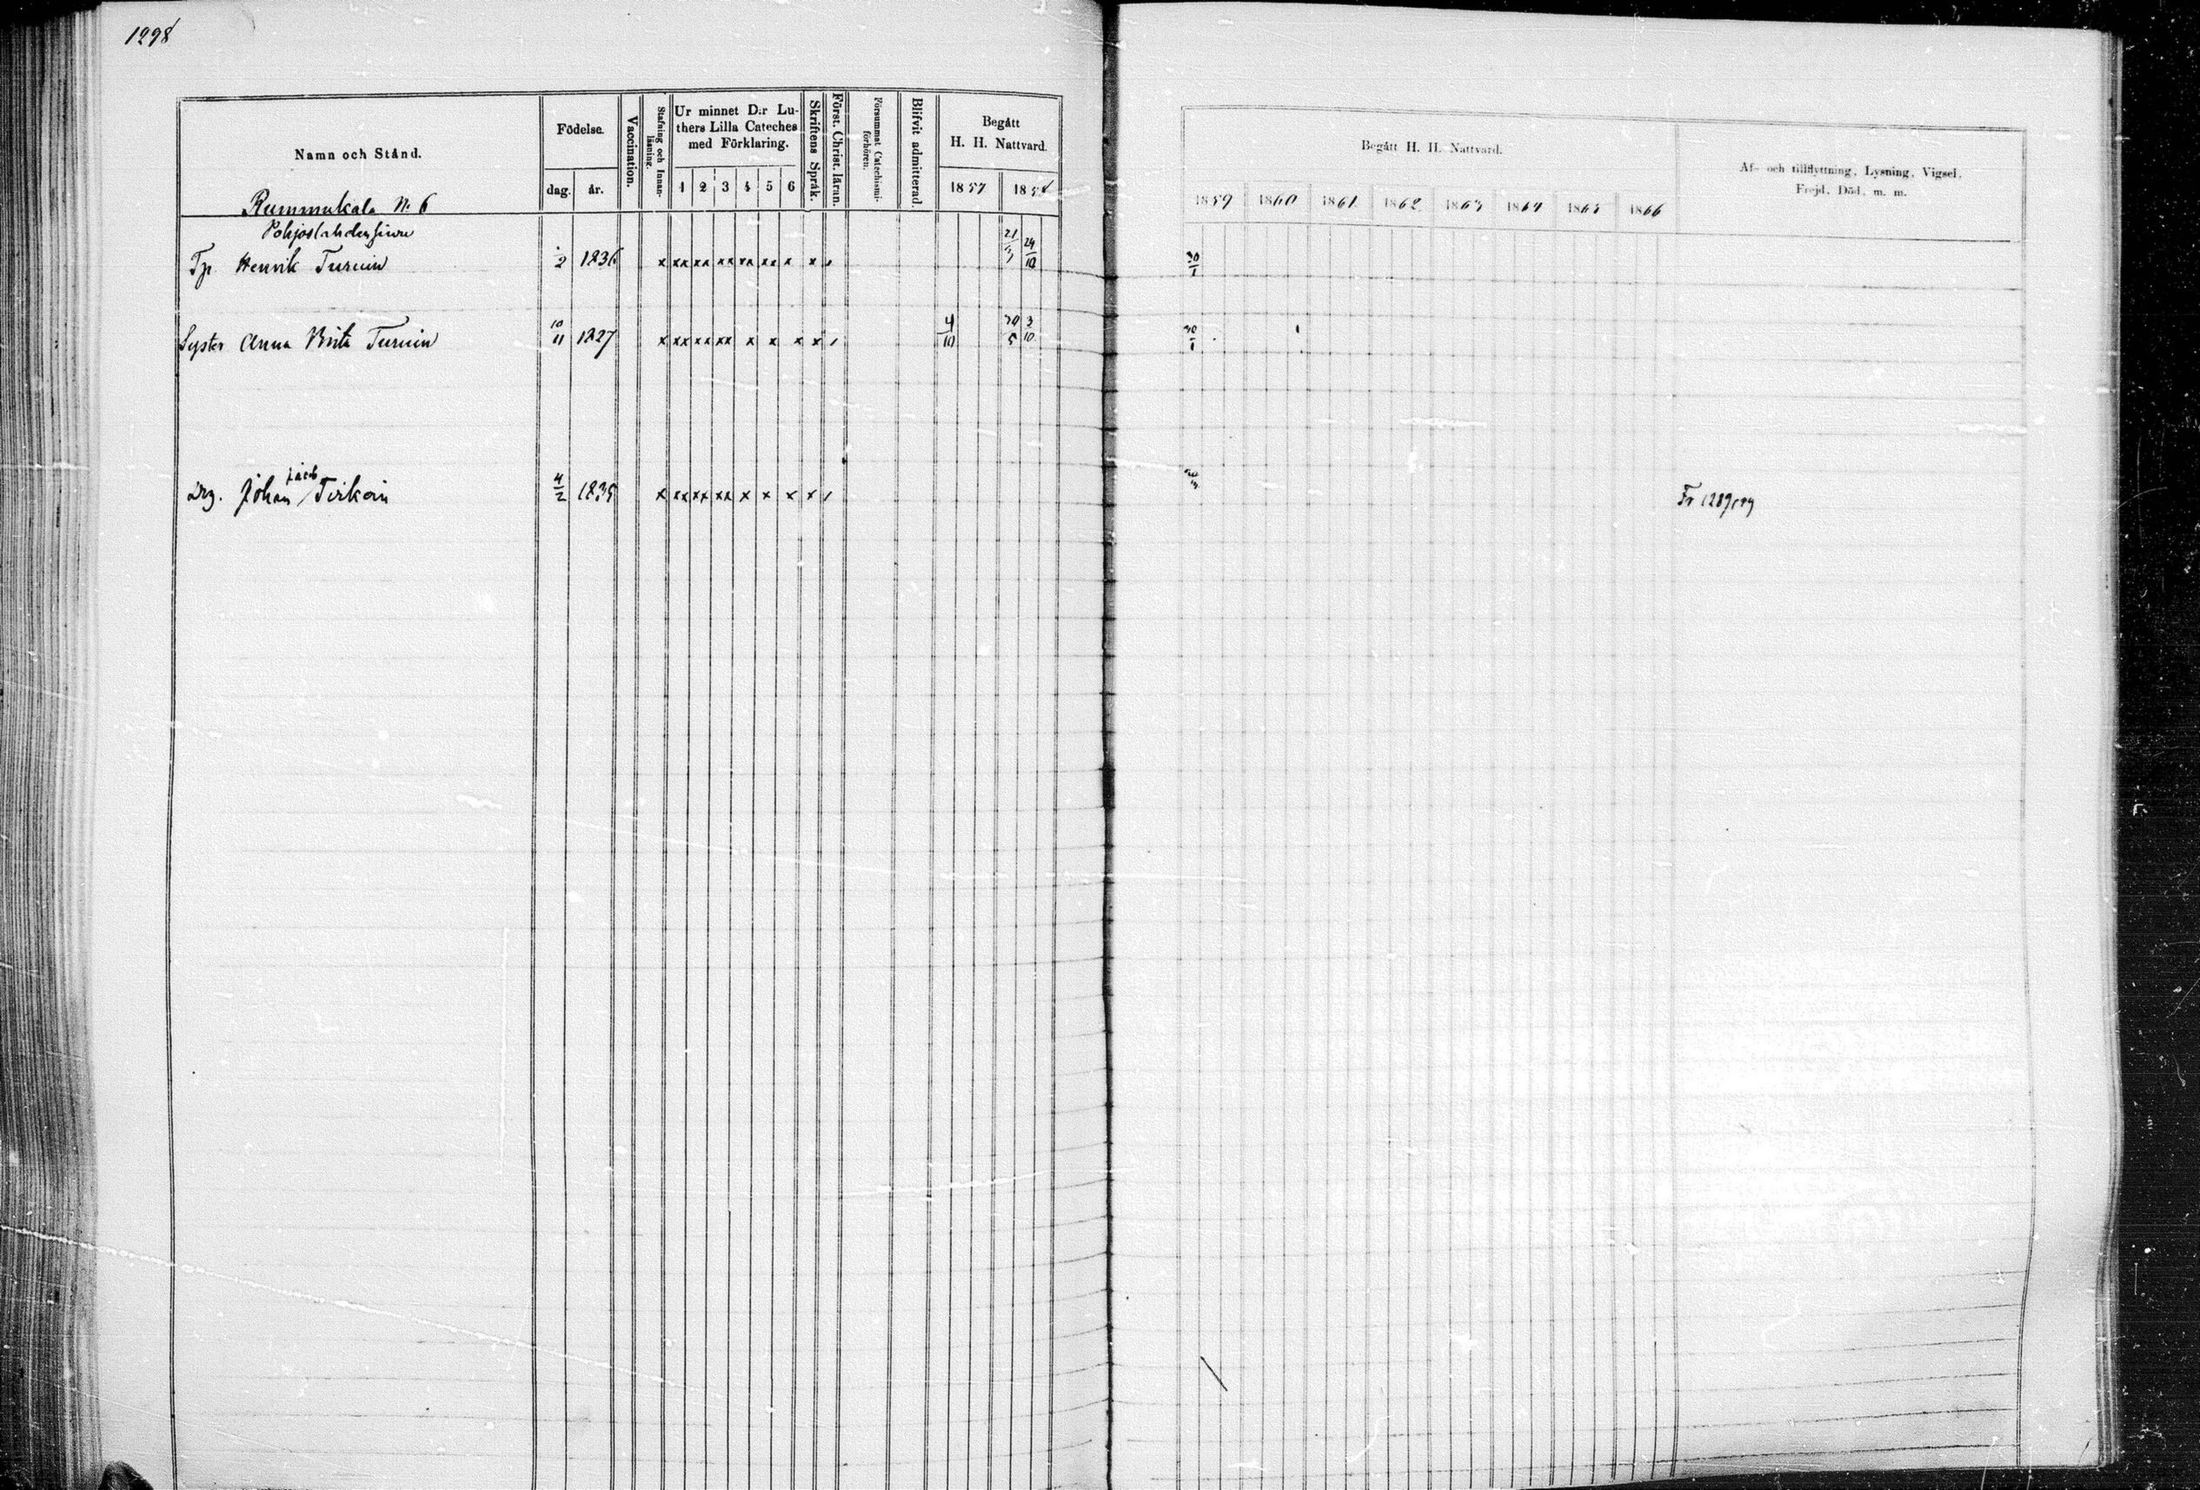 1298
Namn och Stånd.
Födelse.
dag.
år.
Vaccination.
Stafning och Innan-
läsning.
Ur minnet D:r Lu-
thers Lilla Cateches
med Förklaring.
1 2 3 4 5 6
Skriftens Språk.
Först. Christ. läran.
Försummat Catechismi-
förhören.
Blifvit admitterad.
Begått
H. H. Nattvard.
1857 1858
Begått H. H. Nattvard.
1859 1860 1861 1862 1863 1864 1865 1866
Af- och tillflyttning, Lysning, Vigsel,
Frejd, Död, m. m.
Rummukala N:o 6
Tp Henrik Turuin 2 1836 x xx xx xx xx xx x x , 24/10 30/1
Syster Anna Brita Turuin 10/11 1827 x xx xx xx x x x x , 4/10 3/10 30/1
Drg. Johan Jacob 4/2 1835 x xx xx xx x x x x ,